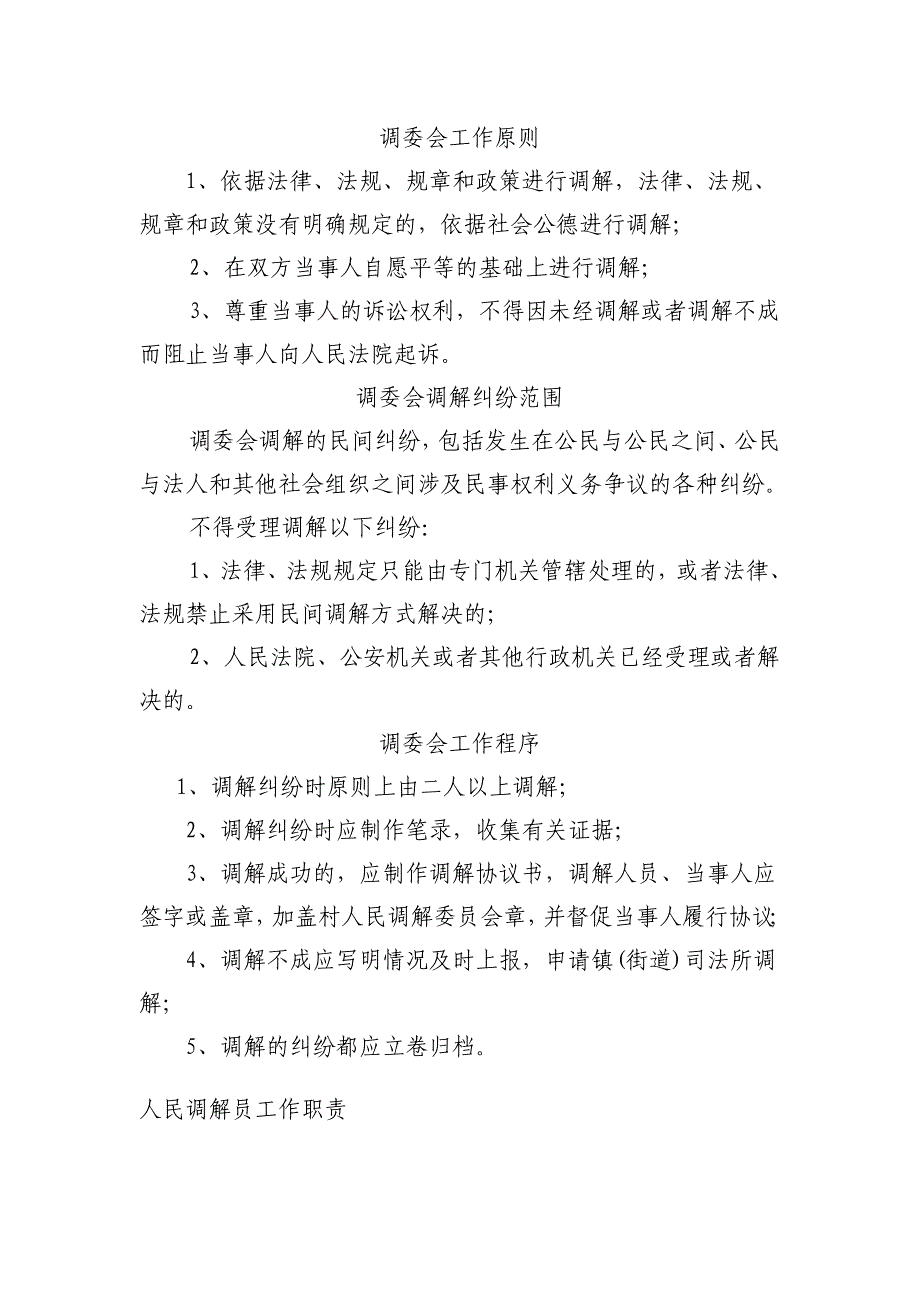 调委会工作原则
1、依据法律、法规、规章和政策进行调解，法律、法规、
规章和政策没有明确规定的，依据社会公德进行调解；
2、在双方当事人自愿平等的基础上进行调解；
3、尊重当事人的诉讼权利，不得因未经调解或者调解不成
而阻止当事人向人民法院起诉。
调委会调解纠纷范围
调委会调解的民间纠纷，包括发生在公民与公民之间、公民
与法人和其他社会组织之间涉及民事权利义务争议的各种纠纷。
不得受理调解以下纠纷：
1、法律、法规规定只能由专门机关管辖处理的，或者法律、
法规禁止采用民间调解方式解决的；
2、人民法院、公安机关或者其他行政机关已经受理或者解
决的。
调委会工作程序
1、调解纠纷时原则上由二人以上调解；
2、调解纠纷时应制作笔录，收集有关证据；
3、调解成功的，应制作调解协议书，调解人员、当事人应
签字或盖章，加盖村人民调解委员会章，并督促当事人履行协议；
4、调解不成应写明情况及时上报，申请镇(街道)司法所调
解；
5、调解的纠纷都应立卷归档。
人民调解员工作职责